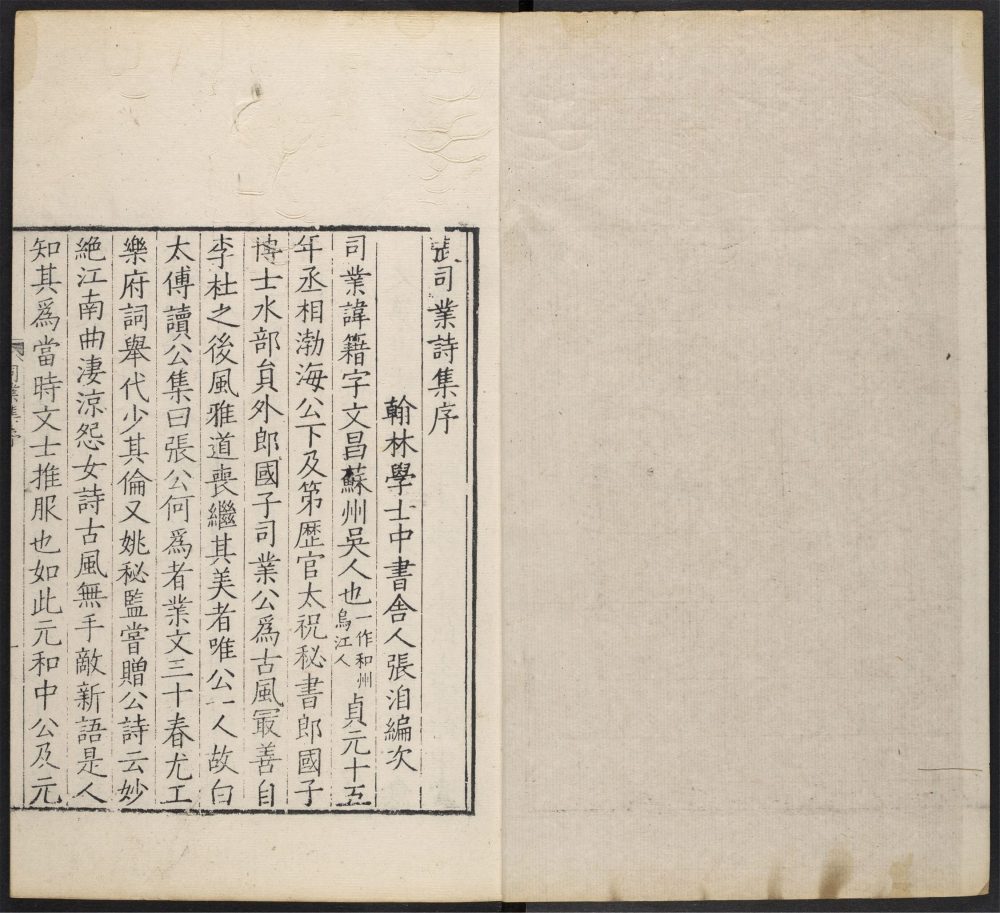 張司業詩集序
翰林學士中書舍人張洎編次
司業諱籍字文昌蘇州吳人也一作和州烏江人貞元十五
年丞相渤海公下及第歷官太祝秘書郎國子
博士水部員外郎國子司業公爲古風冣善自
李杜之後風雅道喪繼其美者唯公一人故白
太傅讀公集曰張公何爲者業文三十春尤工
樂府詞舉代少其倫又姚秘監嘗贈公詩云妙
絶江南曲凄涼怨女詩古風無手敵新語是人
知其爲當時文士推服也如此元和中公及元
司業集序
一